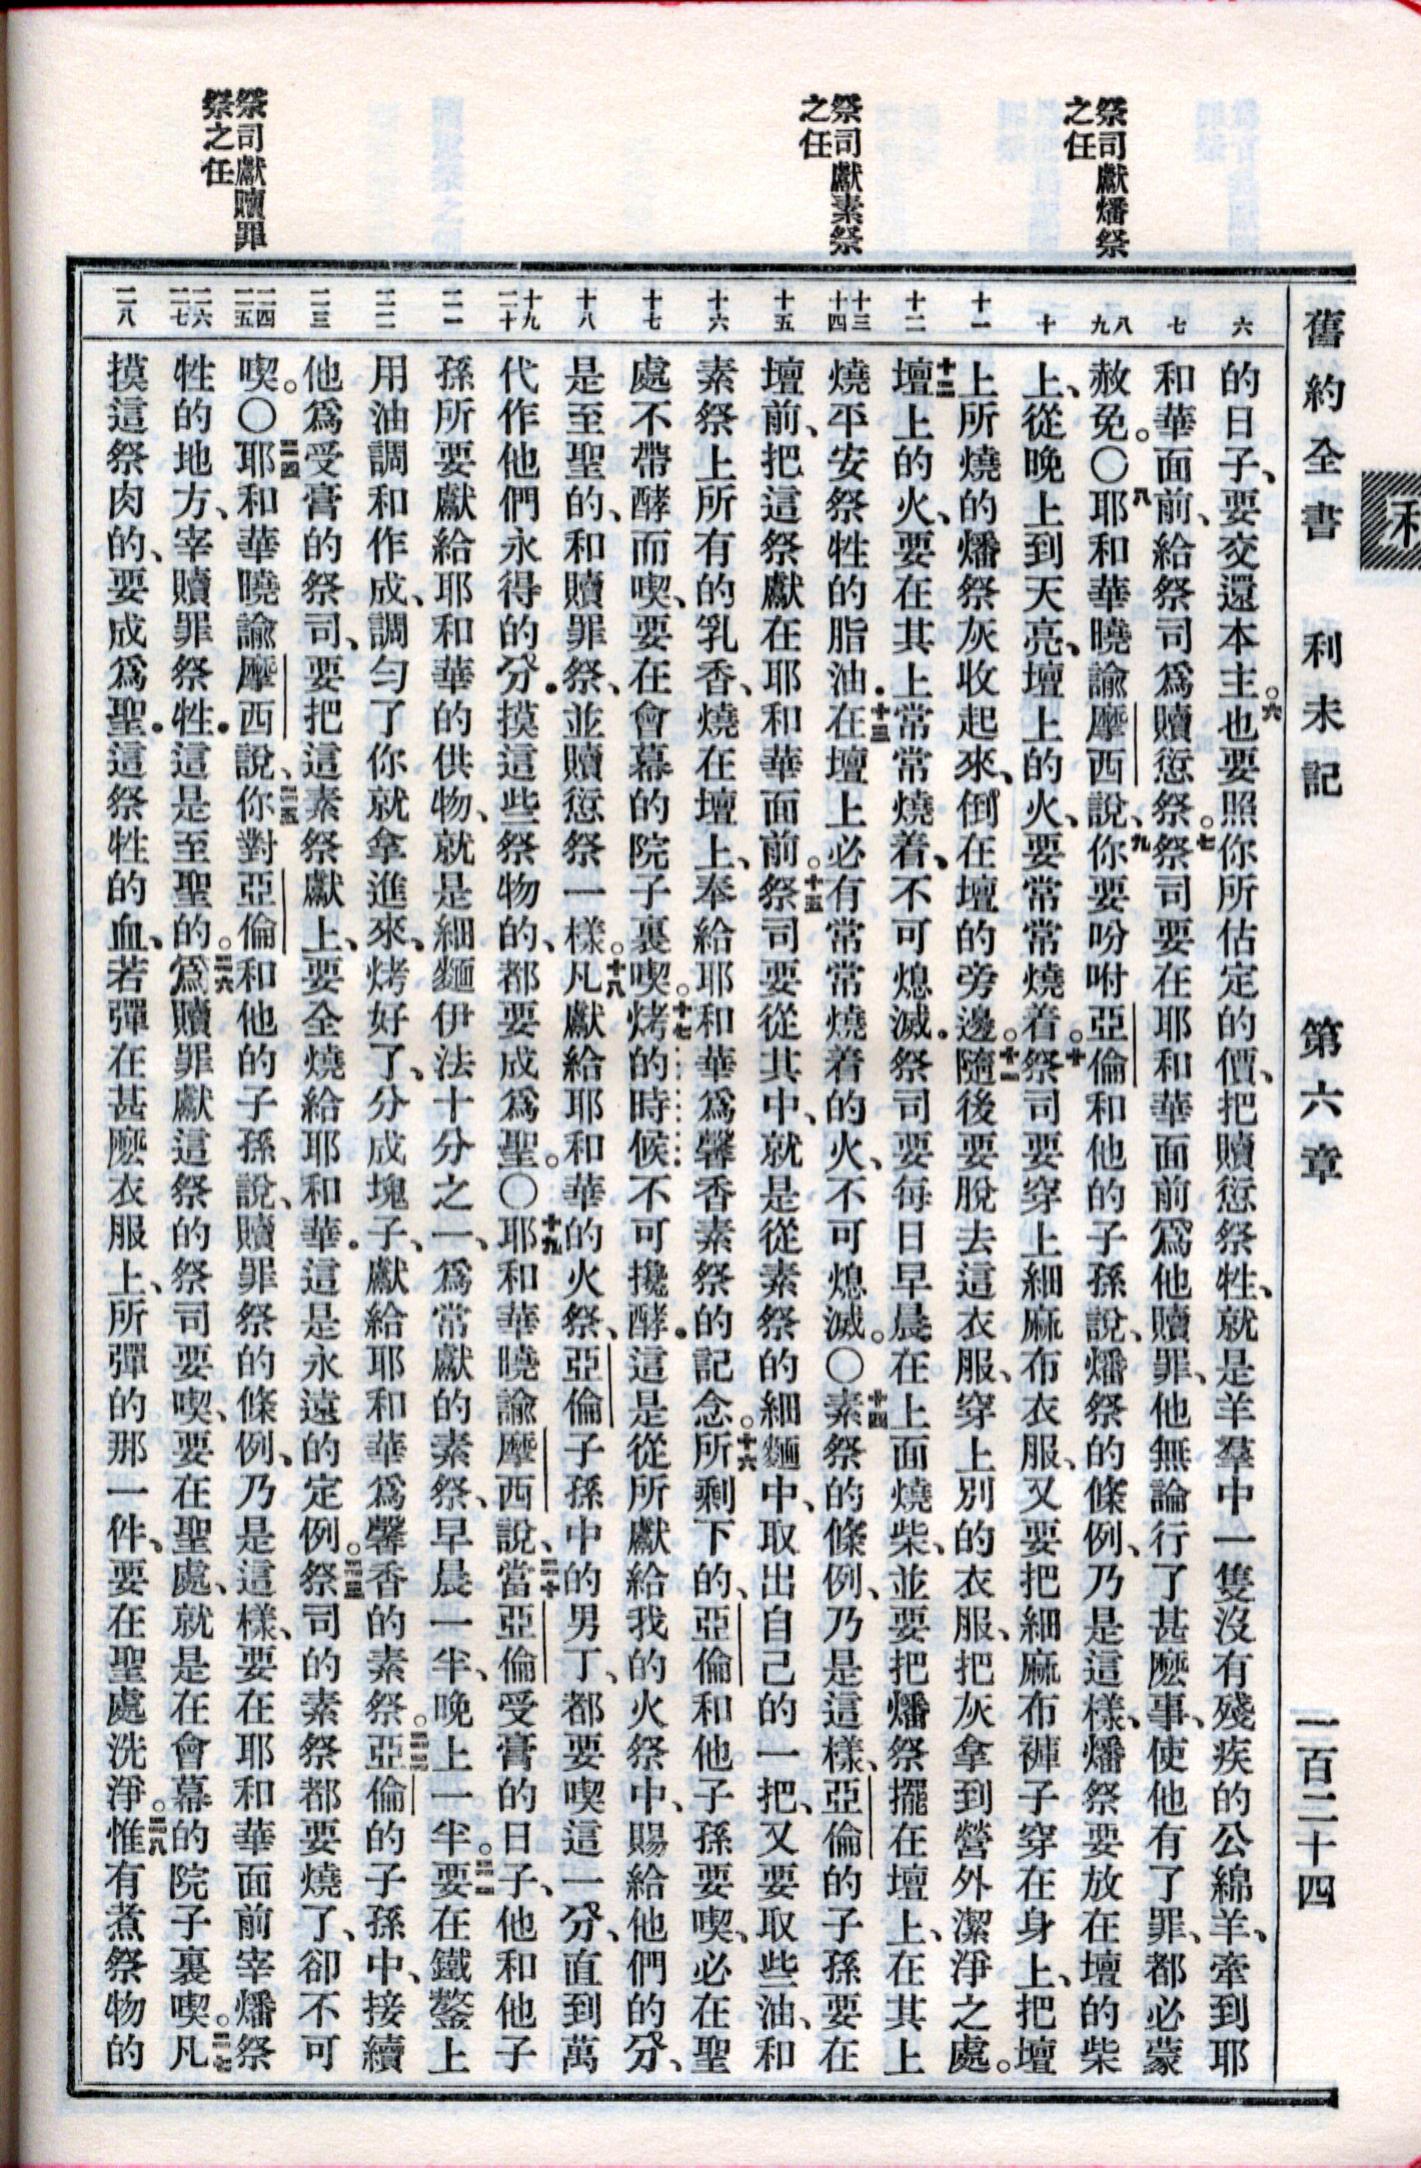 舊約全書 利未記 第六章 一百二十四
利
祭司獻燔祭
之任
祭司獻素祭
之任
祭司獻贖罪
祭之任
六
七
八
九
十
十一
十二
十三
十四
十五
十六
十七
十八
十九
二十
二一
二二
二三
二四
二五
二六
二七
二八
的日子、要交還本主。六也要照你所估定的價、把贖愆祭牲、就是羊羣中一隻沒有殘疾的公綿羊、牽到耶
和華面前、給祭司爲贖愆祭。七祭司要在耶和華面前爲他贖罪、他無論行了甚麽事、使他有了罪、都必蒙
赦免。〇八耶和華曉諭摩西說、九你要吩咐亞倫和他的子孫說、燔祭的條例、乃是這樣、燔祭要放在壇的柴
上、從晚上到天亮、壇上的火、要常常燒着。十祭司要穿上細麻布衣服、又要把細麻布褲子穿在身上、把壇
上所燒的燔祭灰收起來、倒在壇的旁邊。十一隨後要脫去這衣服、穿上別的衣服、把灰拿到營外潔淨之處。
十二壇上的火、要在其上常常燒着、不可熄滅．祭司要每日早晨在上面燒柴、並要把燔祭擺在壇上、在其上
燒平安祭牲的脂油．十三在壇上必有常常燒着的火、不可熄滅。〇十四素祭的條例、乃是這樣、亞倫的子孫要在
壇前、把這祭獻在耶和華面前。十五祭司要從其中、就是從素祭的細麵中、取出自己的一把、又要取些油、和
素祭上所有的乳香、燒在壇上、奉給耶和華爲馨香素祭的記念。十六所剩下的、亞倫和他子孫要喫、必在聖
處不帶酵而喫、要在會幕的院子裏喫。十七烤的時候不可攙酵．這是從所獻給我的火祭中、賜給他們的分、
是至聖的、和贖罪祭、並贖愆祭一樣。十八凡獻給耶和華的火祭、亞倫子孫中的男丁、都要喫這一分、直到萬
代作他們永得的分．摸這些祭物的、都要成爲聖。〇十九耶和華曉諭摩西說、二十當亞倫受膏的日子、他和他子
孫所要獻給耶和華的供物、就是細麵伊法十分之一、爲常獻的素祭、早晨一半、晚上一半。二一要在鐵鏊上
用油調和作成、調勻了你就拿進來、烤好了、分成塊子、獻給耶和華爲馨香的素祭。二二亞倫的子孫中、接續
他爲受膏的祭司、要把這素祭獻上、要全燒給耶和華．這是永遠的定例。二三祭司的素祭都要燒了、卻不可
喫。〇二四耶和華曉諭摩西說、二五你對亞倫和他的子孫說、贖罪祭的條例、乃是這樣、要在耶和華面前宰燔祭
牲的地方、宰贖罪祭牲．這是至聖的。二六爲贖罪獻這祭的祭司要喫、要在聖處、就是在會幕的院子裏喫。二七凡
摸這祭肉的、要成爲聖．這祭牲的血、若彈在甚麽衣服上、所彈的那一件、要在聖處洗淨。二八惟有煮祭物的